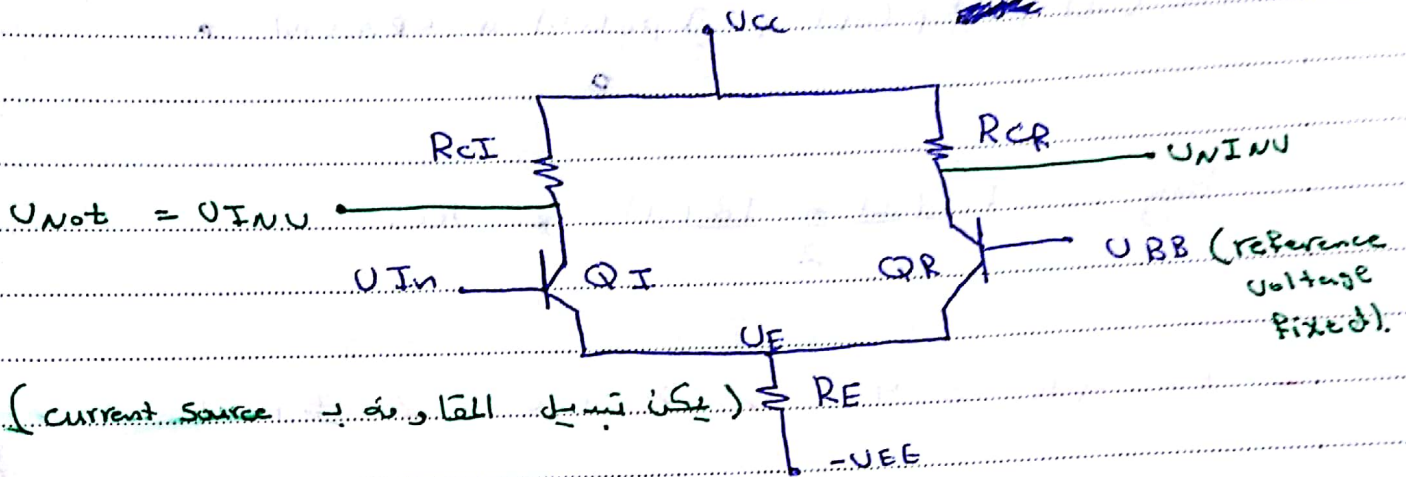 UCC
RCI
RCR
UNINU
UNot = UINU
UIn
QI
QR
UBB (reference
voltage
fixed).
UE
(يمكن تبديل المقاومة بـ current source)
RE
-UEE